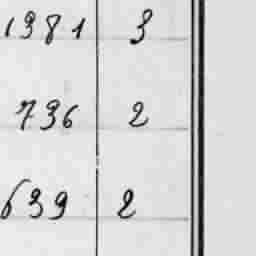 1981 3
736 2
639 2